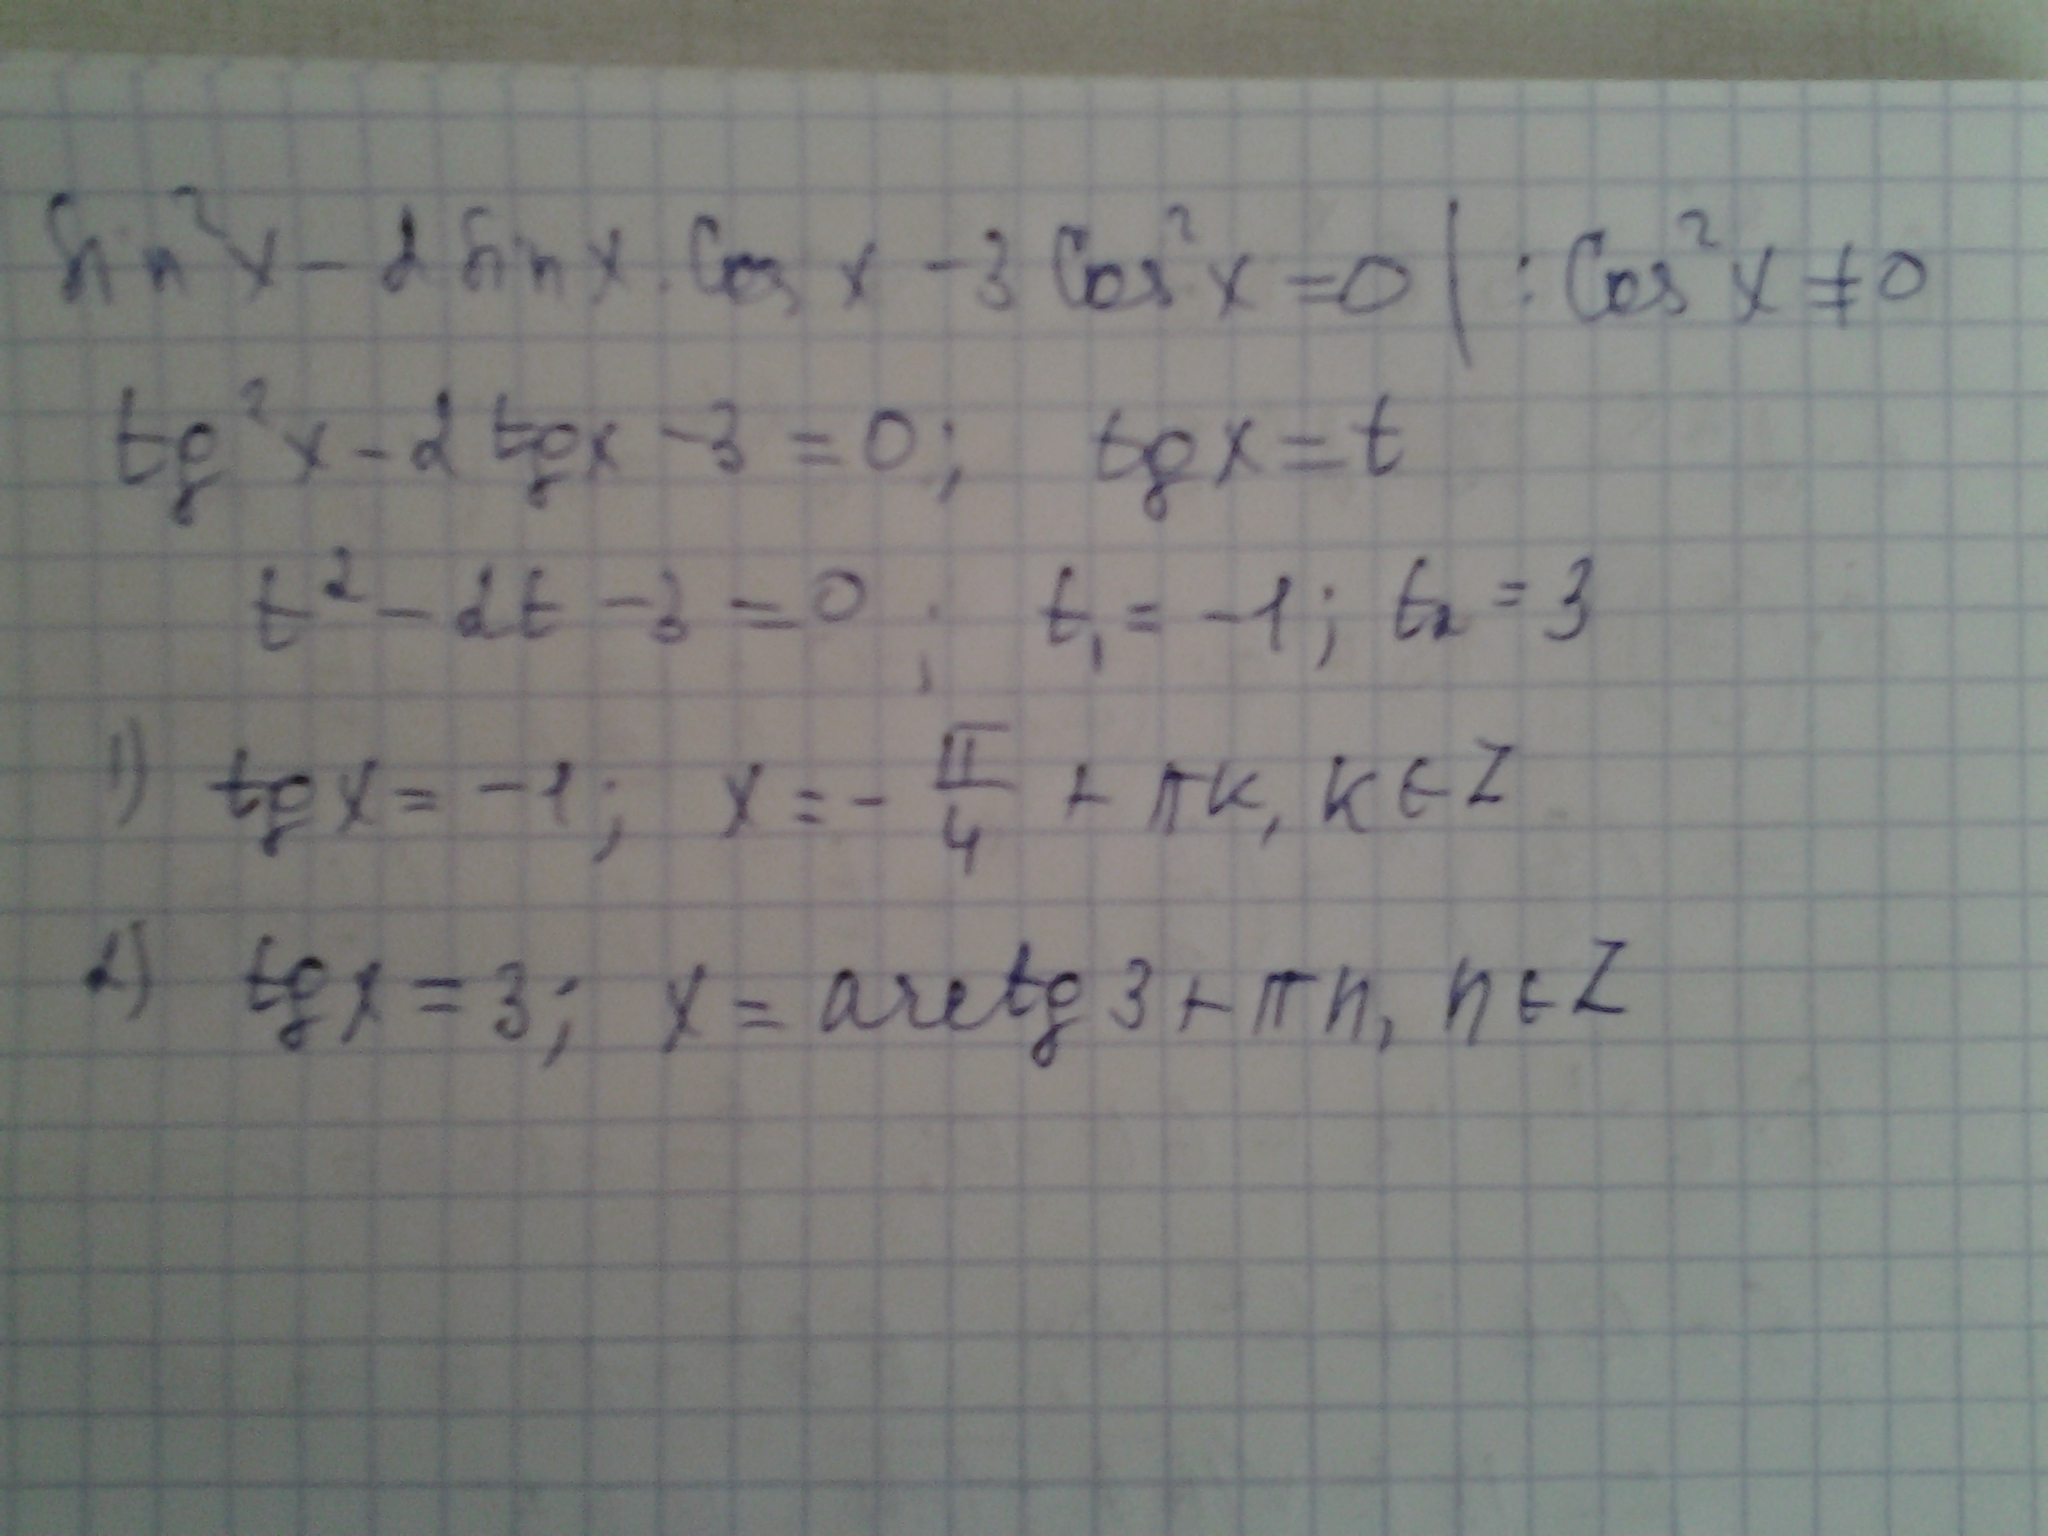 sin²x - 2 sin x · Cos x - 3 Cos²x = 0 | : Cos²x ≠ 0
tg²x - 2 tgx - 3 = 0; tg x = t
t² - 2t - 3 = 0; t₁ = -1; t₂ = 3
1) tg x = -1; x = - π/4 + πk, k ∈ Z
2) tg x = 3; x = arctg 3 + πn, n ∈ Z